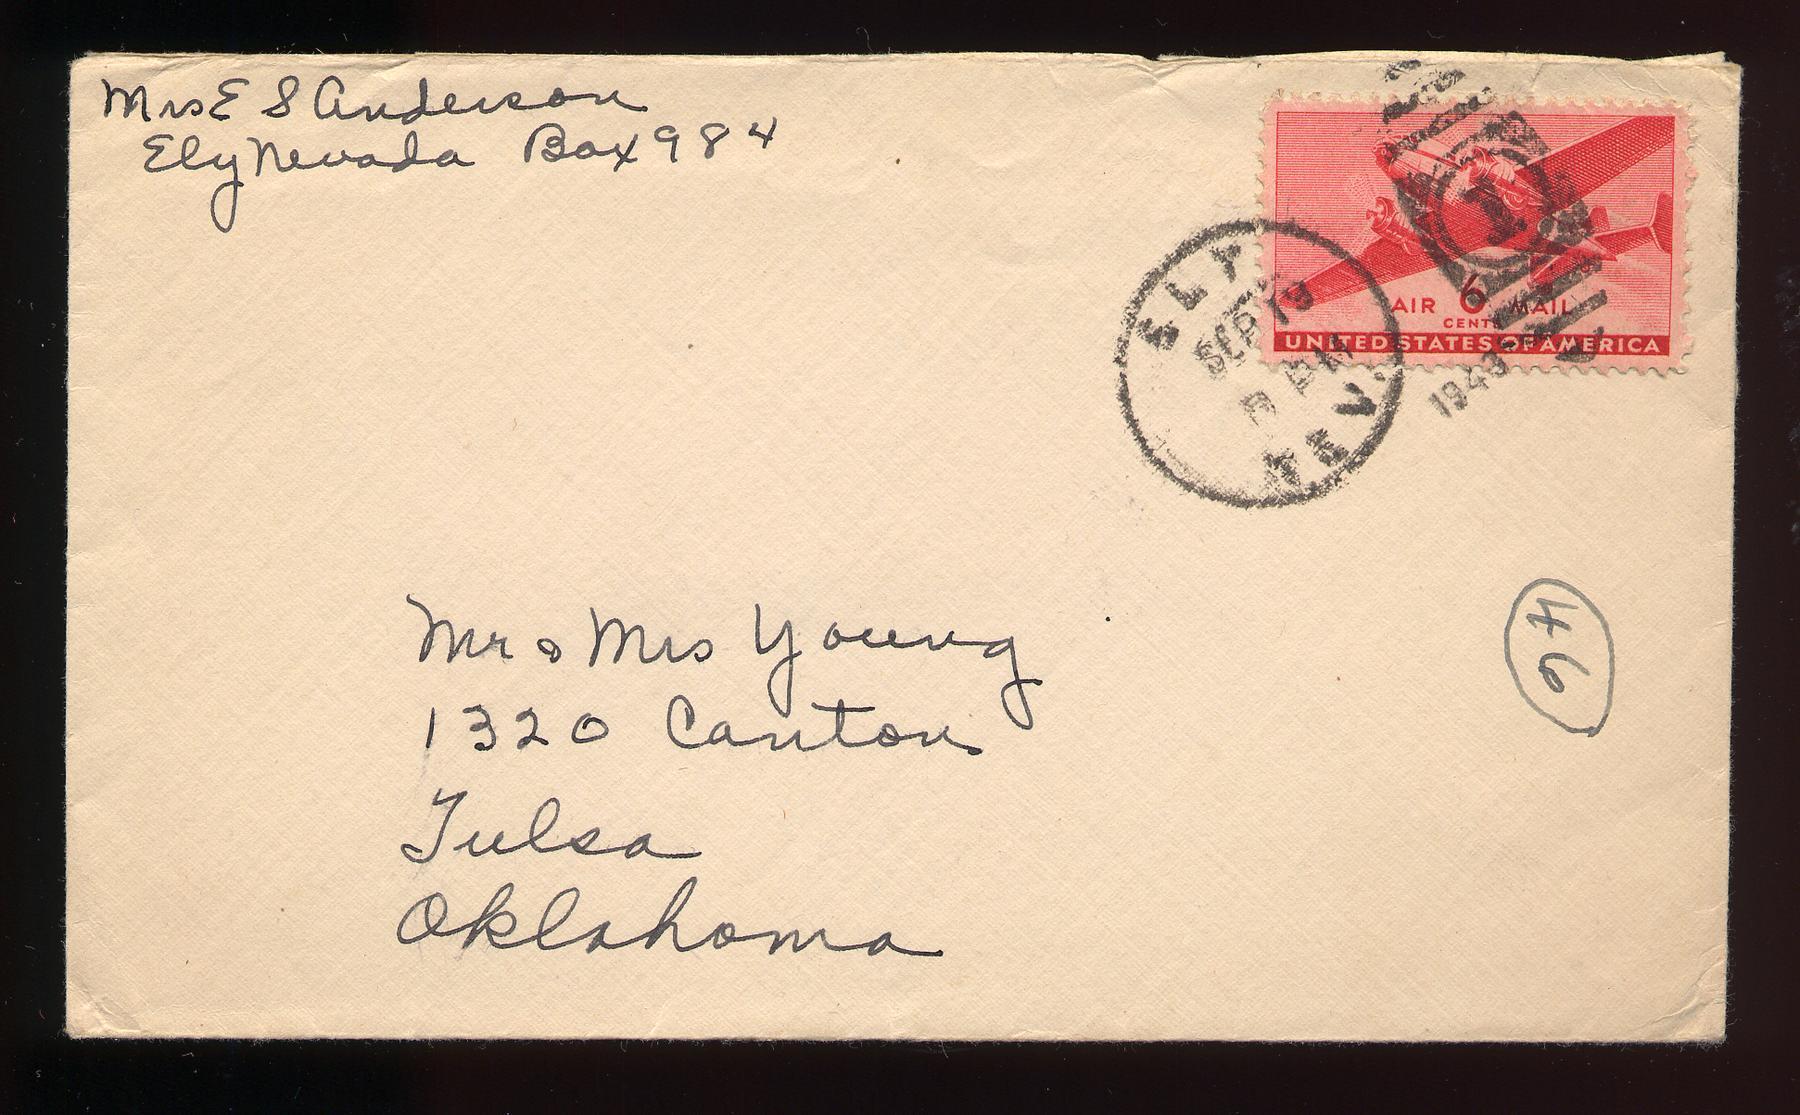 Mrs E S Anderson
Ely Nevada Box 984
AIR 6 MAIL
CENTS
UNITED STATES OF AMERICA
1
ELY
SEP 19
PM
1943
NEV.
Mr & Mrs Young
1320 Canton
Tulsa
Oklahoma
46